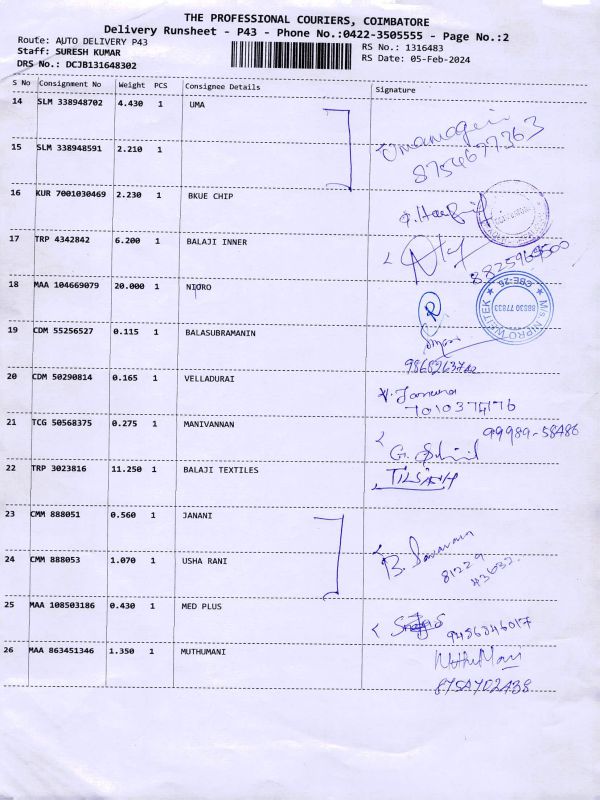 THE PROFESSIONAL COURIERS, COIMBATORE
Delivery Runsheet - P43 - Phone No.:0422-3505555 - Page No.:2
Route: AUTO DELIVERY P43
Staff: SURESH KUMAR
DRS No.: DCJB131648302
RS No.: 1316483
RS Date: 05-Feb-2024
S No Consignment No Weight PCS Consignee Details Signature
14 SLM 338948702 4.430 1 UMA
15 SLM 338948591 2.210 1
16 KUR 7001030469 2.230 1 BKUE CHIP
17 TRP 4342842 6.200 1 BALAJI INNER
8825969500
18 MAA 104669079 20.000 1 NIORO
R
M/s NIPRO WEITEK ★ CBE-26 ★
88630 77833
19 CDM 55256527 0.115 1 BALASUBRAMANIN
20 CDM 50290814 0.165 1 VELLADURAI
21 TCG 50568375 0.275 1 MANIVANNAN
99989-58486
22 TRP 3023816 11.250 1 BALAJI TEXTILES
23 CMM 888051 0.560 1 JANANI
24 CMM 888053 1.070 1 USHA RANI
B. Saravanan
81229
43632
25 MAA 108503186 0.430 1 MED PLUS
9456346017
26 MAA 863451346 1.350 1 MUTHUMANI
MuthuMani